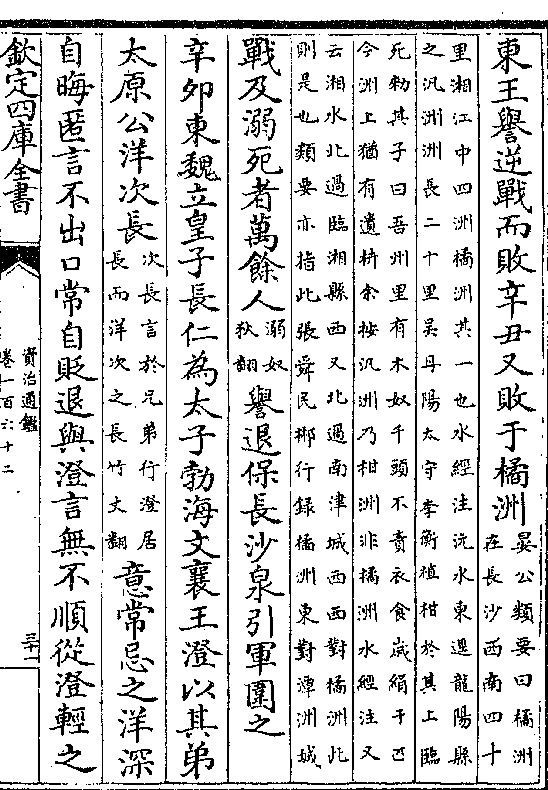 東王譽逆戰而敗辛丑又敗于橘洲晏公類要曰橘洲在長沙西南四十
里湘江中四洲橘洲其一也水經注沅水東逕龍陽縣
之汎洲洲長二十里吳丹陽太守李衡植柑於其上臨
死勑其子曰吾州里有木奴千頭不責衣食歲絹千匹
今洲上猶有遺枿余按汎洲乃柑洲非橘洲水經注又
云湘水北過臨湘縣西又北過南津城西西對橘洲此
則是也類要亦指此張舜民郴行録橘洲東對潭洲城
戰及溺死者萬餘人溺奴狄翻譽退保長沙泉引軍圍之
辛卯東魏立皇子長仁為太子勃海文襄王澄以其弟
太原公洋次長次長言於兄弟行澄居長而洋次之長竹丈翻意常忌之洋深
自晦匿言不出口常自貶退與澄言無不順從澄輕之
欽定四庫全書
資治通鑑
卷一百六十二